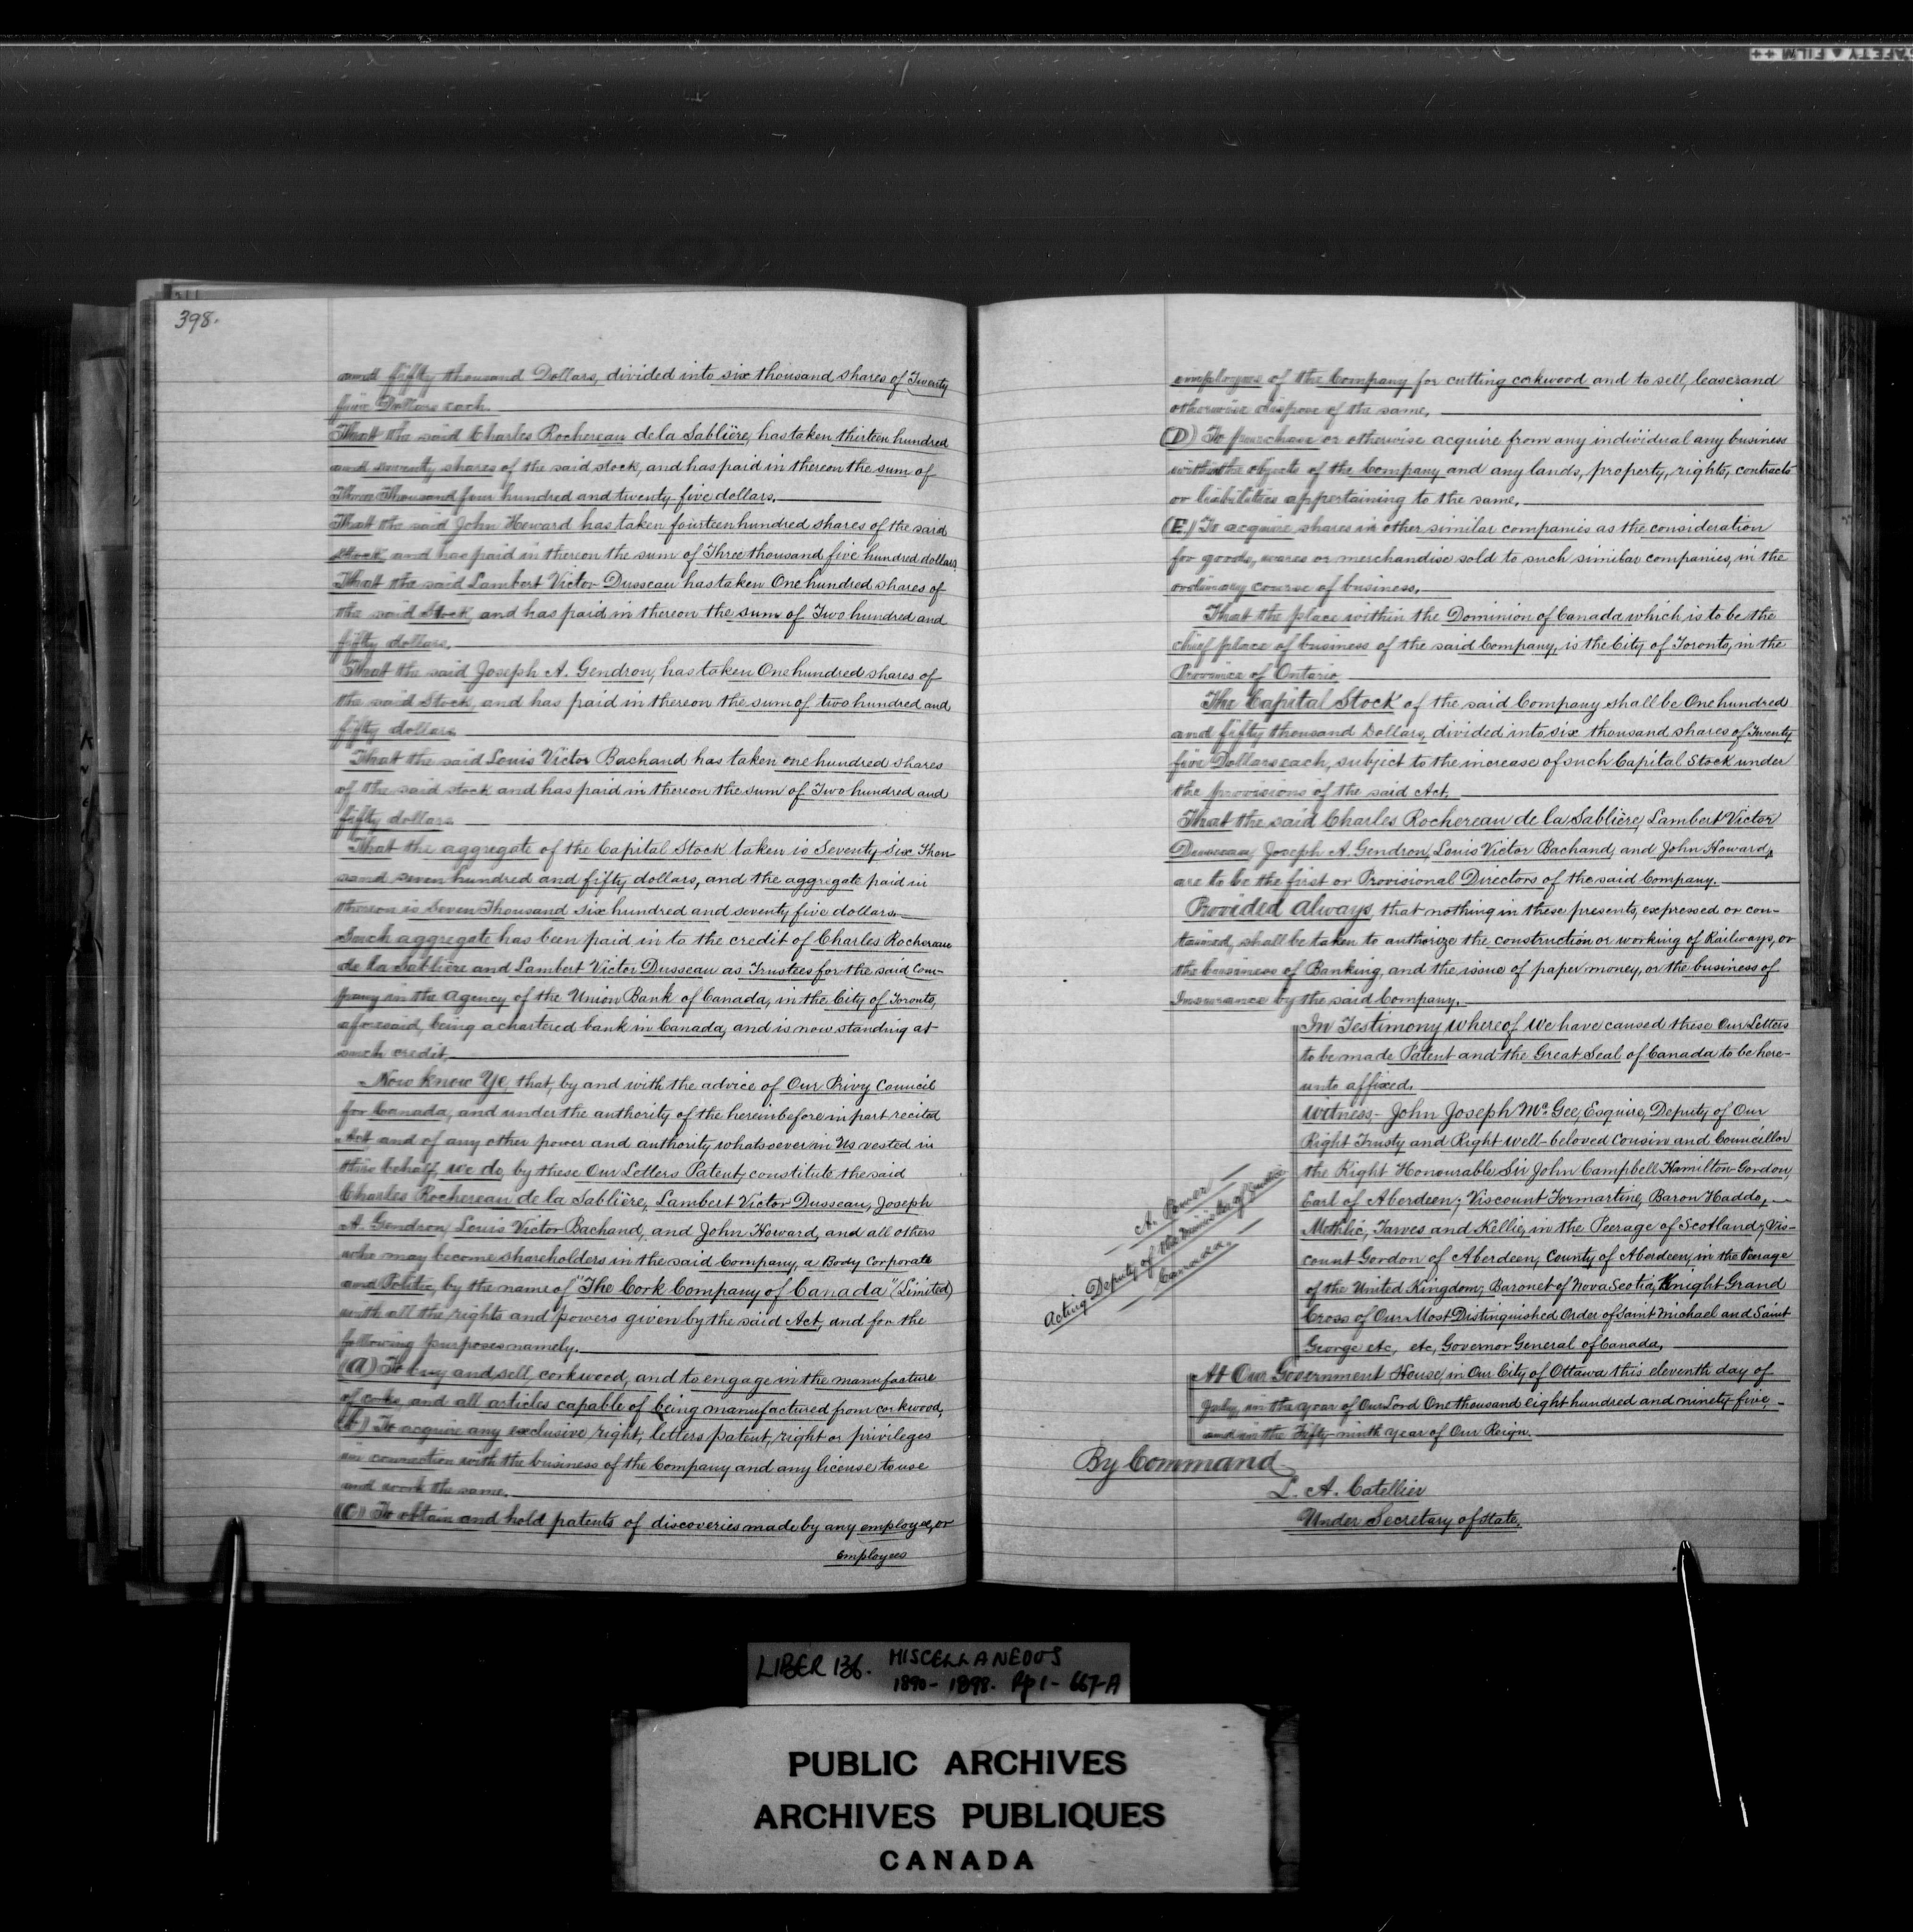 SAFETY ▲ FILM ++
398.
and fifty thousand Dollars, divided into six thousand shares of Twenty
five Dollars each.
That the said Charles Rochereau de la Sablière, has taken thirteen hundred
and seventy shares of the said stock, and has paid in thereon the sum of
Three Thousand four hundred and twenty five dollars.
That the said John Howard has taken fourteen hundred shares of the said
Stock and has paid in thereon the sum of Three thousand five hundred dollars.
That the said Lambert Victor Dusseau has taken One hundred shares of
the said Stock and has paid in thereon the sum of Two hundred and
fifty dollars.
That the said Joseph A. Gendron, has taken One hundred shares of
the said Stock, and has paid in thereon the sum of two hundred and
fifty dollars
That the said Louis Victor Bachand has taken one hundred shares
of the said stock and has paid in thereon the sum of Two hundred and
fifty dollars
That the aggregate of the Capital Stock taken is Seventy Six Thou-
sand seven hundred and fifty dollars, and the aggregate paid in
thereon is Seven Thousand six hundred and seventy five dollars.
Such aggregate has been paid in to the credit of Charles Rochereau
de la Sablière and Lambert Victor Dusseau as Trustees for the said Com-
pany in the Agency of the Union Bank of Canada, in the City of Toronto,
aforesaid, being a chartered bank in Canada, and is now standing at
such credit.
Now know Ye, that, by and with the advice of Our Privy Council
for Canada, and under the authority of the hereinbefore in part recited
Act and of any other power and authority whatsoever in Us vested in
this behalf, we do, by these Our Letters Patent, constitute the said
Charles Rochereau de la Sablière, Lambert Victor Dusseau, Joseph
A. Gendron, Louis Victor Bachand, and John Howard, and all others
who may become shareholders in the said Company, a Body Corporate
and Politic, by the name of "The Cork Company of Canada" (Limited)
with all the rights and powers given by the said Act, and for the
following purposes namely.
(A) To buy and sell, corkwood, and to engage in the manufacture
of corks, and all articles capable of being manufactured from corkwood,
(B) To acquire any exclusive right, letters patent, right or privileges
in connection with the business of the Company and any license to use
and work the same.
(C) To obtain and hold patents of discoveries made by any employee, or
employees
employees of the Company for cutting corkwood and to sell, lease and
otherwise dispose of the same,
(D) To purchase or otherwise acquire from any individual any business
within the objects of the Company and any lands, property, rights, contracts
or liabilities appertaining to the same.
(E) To acquire shares in other similar companies as the consideration
for goods, wares or merchandise sold to such similar companies, in the
ordinary course of business.
That the place within the Dominion of Canada which is to be the
chief place of business of the said Company, is the City of Toronto, in the
Province of Ontario
The Capital Stock of the said Company shall be One hundred
and fifty thousand Dollars, divided into six thousand shares of Twenty
five Dollars each, subject to the increase of such Capital Stock under
the provisions of the said Act.
That the said Charles Rochereau de la Sablière, Lambert Victor
Dusseau, Joseph A. Gendron, Louis Victor Bachand, and John Howard,
are to be the first or Provisional Directors of the said Company.
Provided Always, that nothing in these presents, expressed or con-
tained, shall be taken to authorize the construction or working of Railways, or
the business of Banking, and the issue of paper money, or the business of
Insurance by the said Company.
In Testimony Whereof We have caused these Our Letters
to be made Patent and the Great Seal of Canada to be here-
unto affixed.
Witness- John Joseph McGee, Esquire, Deputy of Our
Right Trusty and Right well-beloved Cousin and Councillor
the Right Honourable Sir John Campbell Hamilton-Gordon,
Earl of Aberdeen; Viscount Formartine, Baron Haddo,
Methlic, Tarves and Kellie, in the Peerage of Scotland; Vis-
count Gordon of Aberdeen, County of Aberdeen, in the Peerage
of the United Kingdom; Baronet of Nova Scotia, Knight Grand
Cross of Our Most Distinguished Order of Saint Michael and Saint
George etc, etc, Governor General of Canada,
At Our Government House, in Our City of Ottawa this eleventh day of
July, in the year of Our Lord One thousand eight hundred and ninety-five
and in the Fifty-ninth year of Our Reign.
A. Power
Acting Deputy of the Minister of Justice
Canada.
By Command
L. A. Catellier
Under Secretary of State.
LIBER 136. MISCELLANEOUS
1890-1898. Pp 1-667-A
PUBLIC ARCHIVES
ARCHIVES PUBLIQUES
CANADA